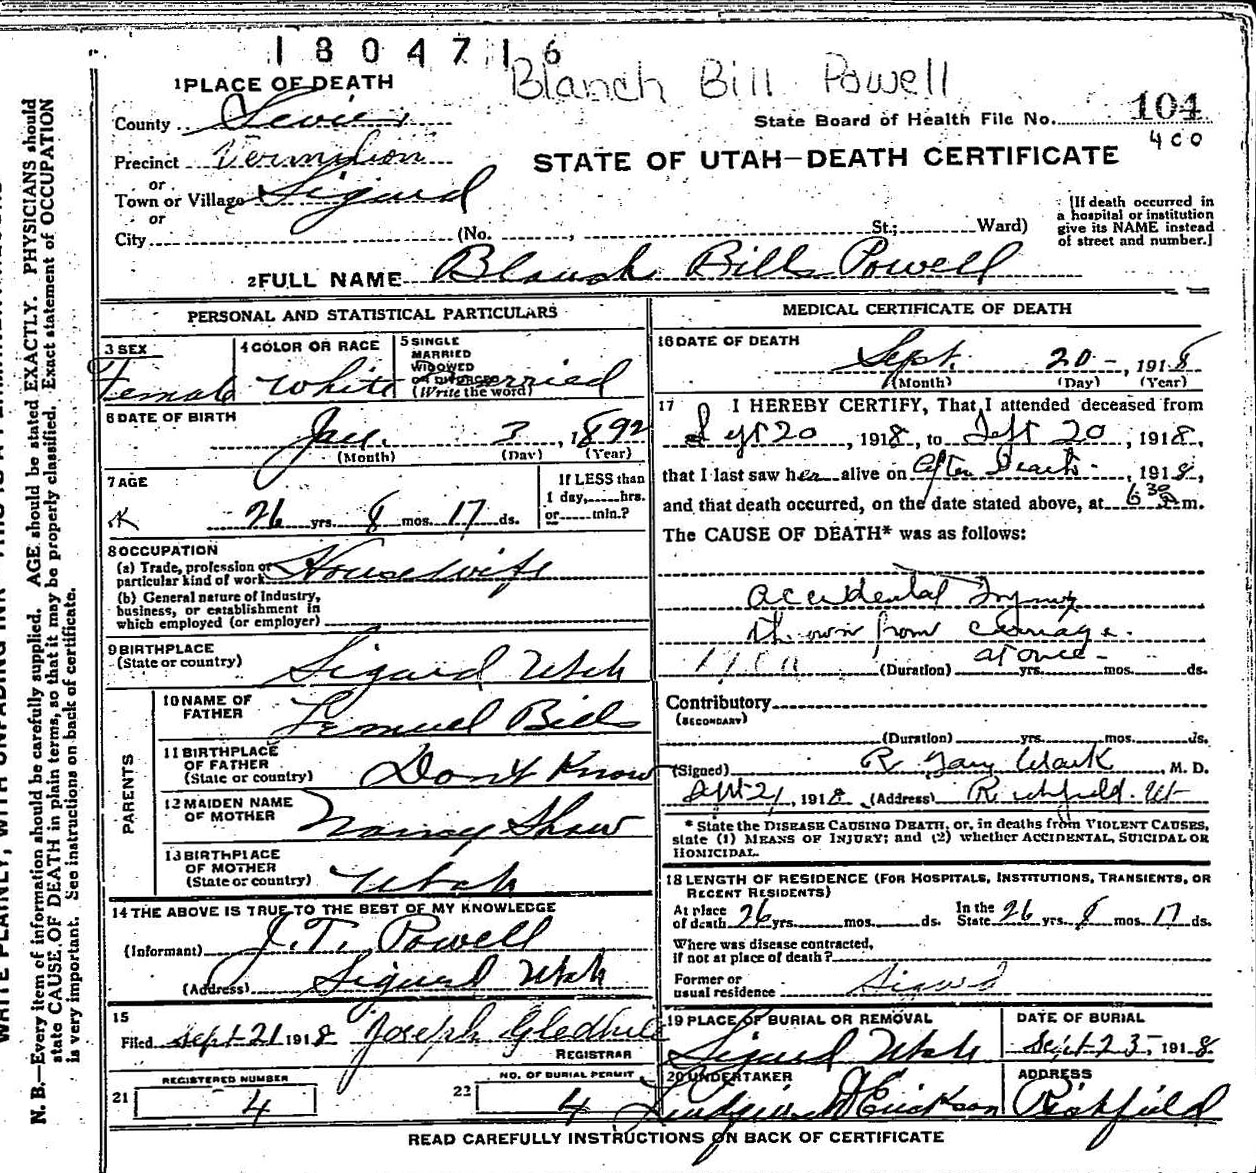 1804716
Blanch Bill Powell
1 PLACE OF DEATH
County Sevier
State Board of Health File No. 104
400
Precinct Vermilion
STATE OF UTAH—DEATH CERTIFICATE
or
Town or Village Sigurd
or
City (No. , St.; Ward)
[If death occurred in
a hospital or institution
give its NAME instead
of street and number.]
2 FULL NAME Blanch Bills Powell
PERSONAL AND STATISTICAL PARTICULARS
3 SEX
Female
4 COLOR OR RACE
White
5 SINGLE
MARRIED
WIDOWED
OR DIVORCED
(Write the word)
Married
6 DATE OF BIRTH
Jan. 3, 1892
(Month) (Day) (Year)
7 AGE
26 yrs. 8 mos. 17 ds.
If LESS than
1 day, hrs.
or min.?
8 OCCUPATION
(a) Trade, profession or
particular kind of work Housewife
(b) General nature of Industry,
business, or establishment in
which employed (or employer)
9 BIRTHPLACE
(State or country) Sigurd Utah
PARENTS
10 NAME OF
FATHER Lemuel Bills
11 BIRTHPLACE
OF FATHER
(State or country) Don't Know
12 MAIDEN NAME
OF MOTHER Nancy Shaw
13 BIRTHPLACE
OF MOTHER
(State or country) Utah
14 THE ABOVE IS TRUE TO THE BEST OF MY KNOWLEDGE
(Informant) J. T. Powell
(Address) Sigurd Utah
15
Filed Sept 21 1918 Joseph Gledhill
REGISTRAR
REGISTERED NUMBER
21 4
NO. OF BURIAL PERMIT
22 4
MEDICAL CERTIFICATE OF DEATH
16 DATE OF DEATH
Sept. 20 -, 1918
(Month) (Day) (Year)
17 I HEREBY CERTIFY, That I attended deceased from
Sept 20, 1918, to Sept 20, 1918,
that I last saw her alive on After Death -, 1918,
and that death occurred, on the date stated above, at 6 30 m.
The CAUSE OF DEATH* was as follows:
Accidental Injury
thrown from carriage.
at once -
(Duration) yrs. mos. ds.
Contributory
(SECONDARY)
(Duration) yrs. mos. ds.
(Signed) R. Gary Clark M. D.
Sept 21, 1918 (Address) Richfield. Ut
* State the DISEASE CAUSING DEATH, or, in deaths from VIOLENT CAUSES,
state (1) MEANS OF INJURY; and (2) whether ACCIDENTAL, SUICIDAL OR
HOMICIDAL.
18 LENGTH OF RESIDENCE (FOR HOSPITALS, INSTITUTIONS, TRANSIENTS, OR
RECENT RESIDENTS)
At place
of death 26 yrs. mos. ds. In the
State 26 yrs. 8 mos. 17 ds.
Where was disease contracted,
if not at place of death?
Former or
usual residence Sigurd
19 PLACE OF BURIAL OR REMOVAL
Sigurd Utah
DATE OF BURIAL
Sept 23, 1918
20 UNDERTAKER
Erickson
ADDRESS
Richfield
READ CAREFULLY INSTRUCTIONS ON BACK OF CERTIFICATE
WRITE PLAINLY, WITH UNFADING INK
N. B.—Every item of information should be carefully supplied. AGE should be stated EXACTLY. PHYSICIANS should
state CAUSE OF DEATH in plain terms, so that it may be properly classified. Exact statement of OCCUPATION
is very important. See instructions on back of certificate.